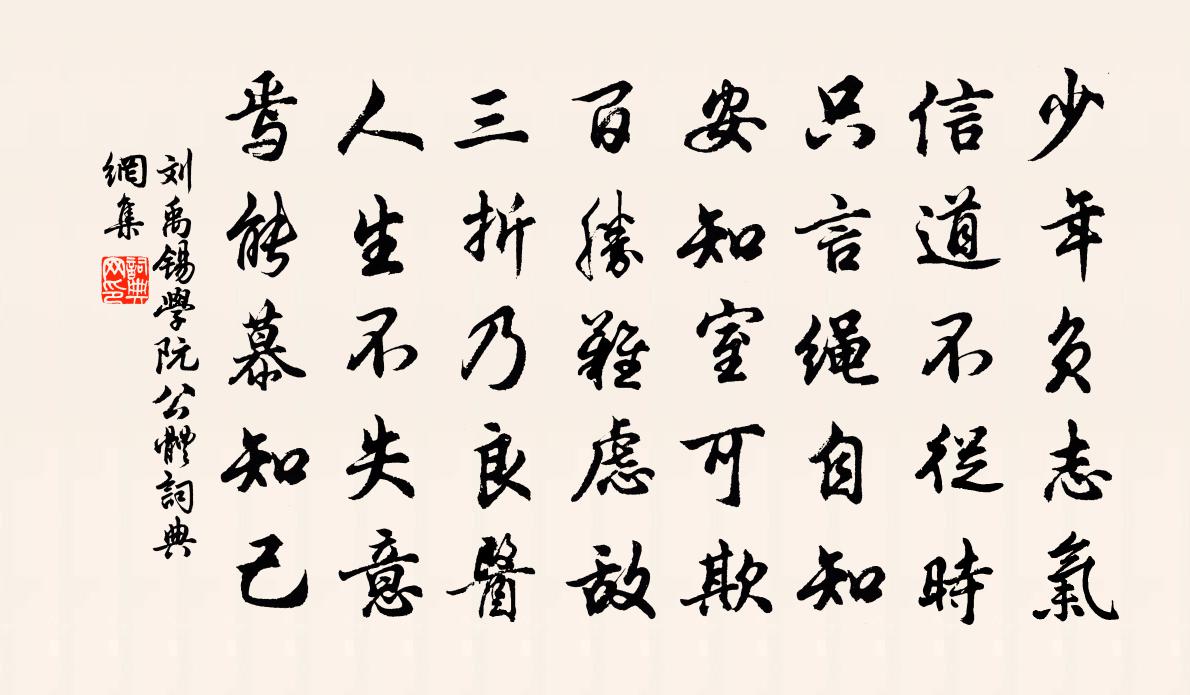 少年负志氣
信道不從時
只言绳自知
安知室可欺
百勝難虑敌
三折乃良醫
人生不失意
焉能慕知己
刘禹锡學阮公體詞典
網集
詞典
网印